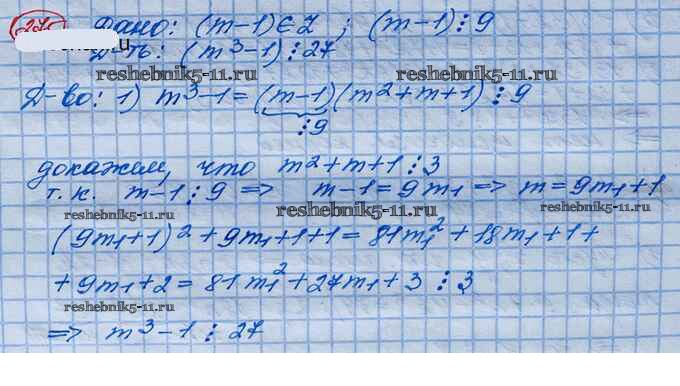 Дано: (m-1)∈Z ; (m-1)⋮9
Д-ть: (m³-1)⋮27
reshebnik5-11.ru reshebnik5-11.ru
Д-во: 1) m³-1=(m-1)(m²+m+1)⋮9
⋮9
докажем, что m²+m+1⋮3
т.к. m-1⋮9 => m-1=9m₁ => m=9m₁+1
reshebnik5-11.ru reshebnik5-11.ru reshebnik5-11.ru
(9m₁+1)²+9m₁+1+1=81m₁²+18m₁+1+
+9m₁+2=81m₁²+27m₁+3⋮3
reshebnik5-11.ru
=> m³-1⋮27
reshebnik5-11.ru